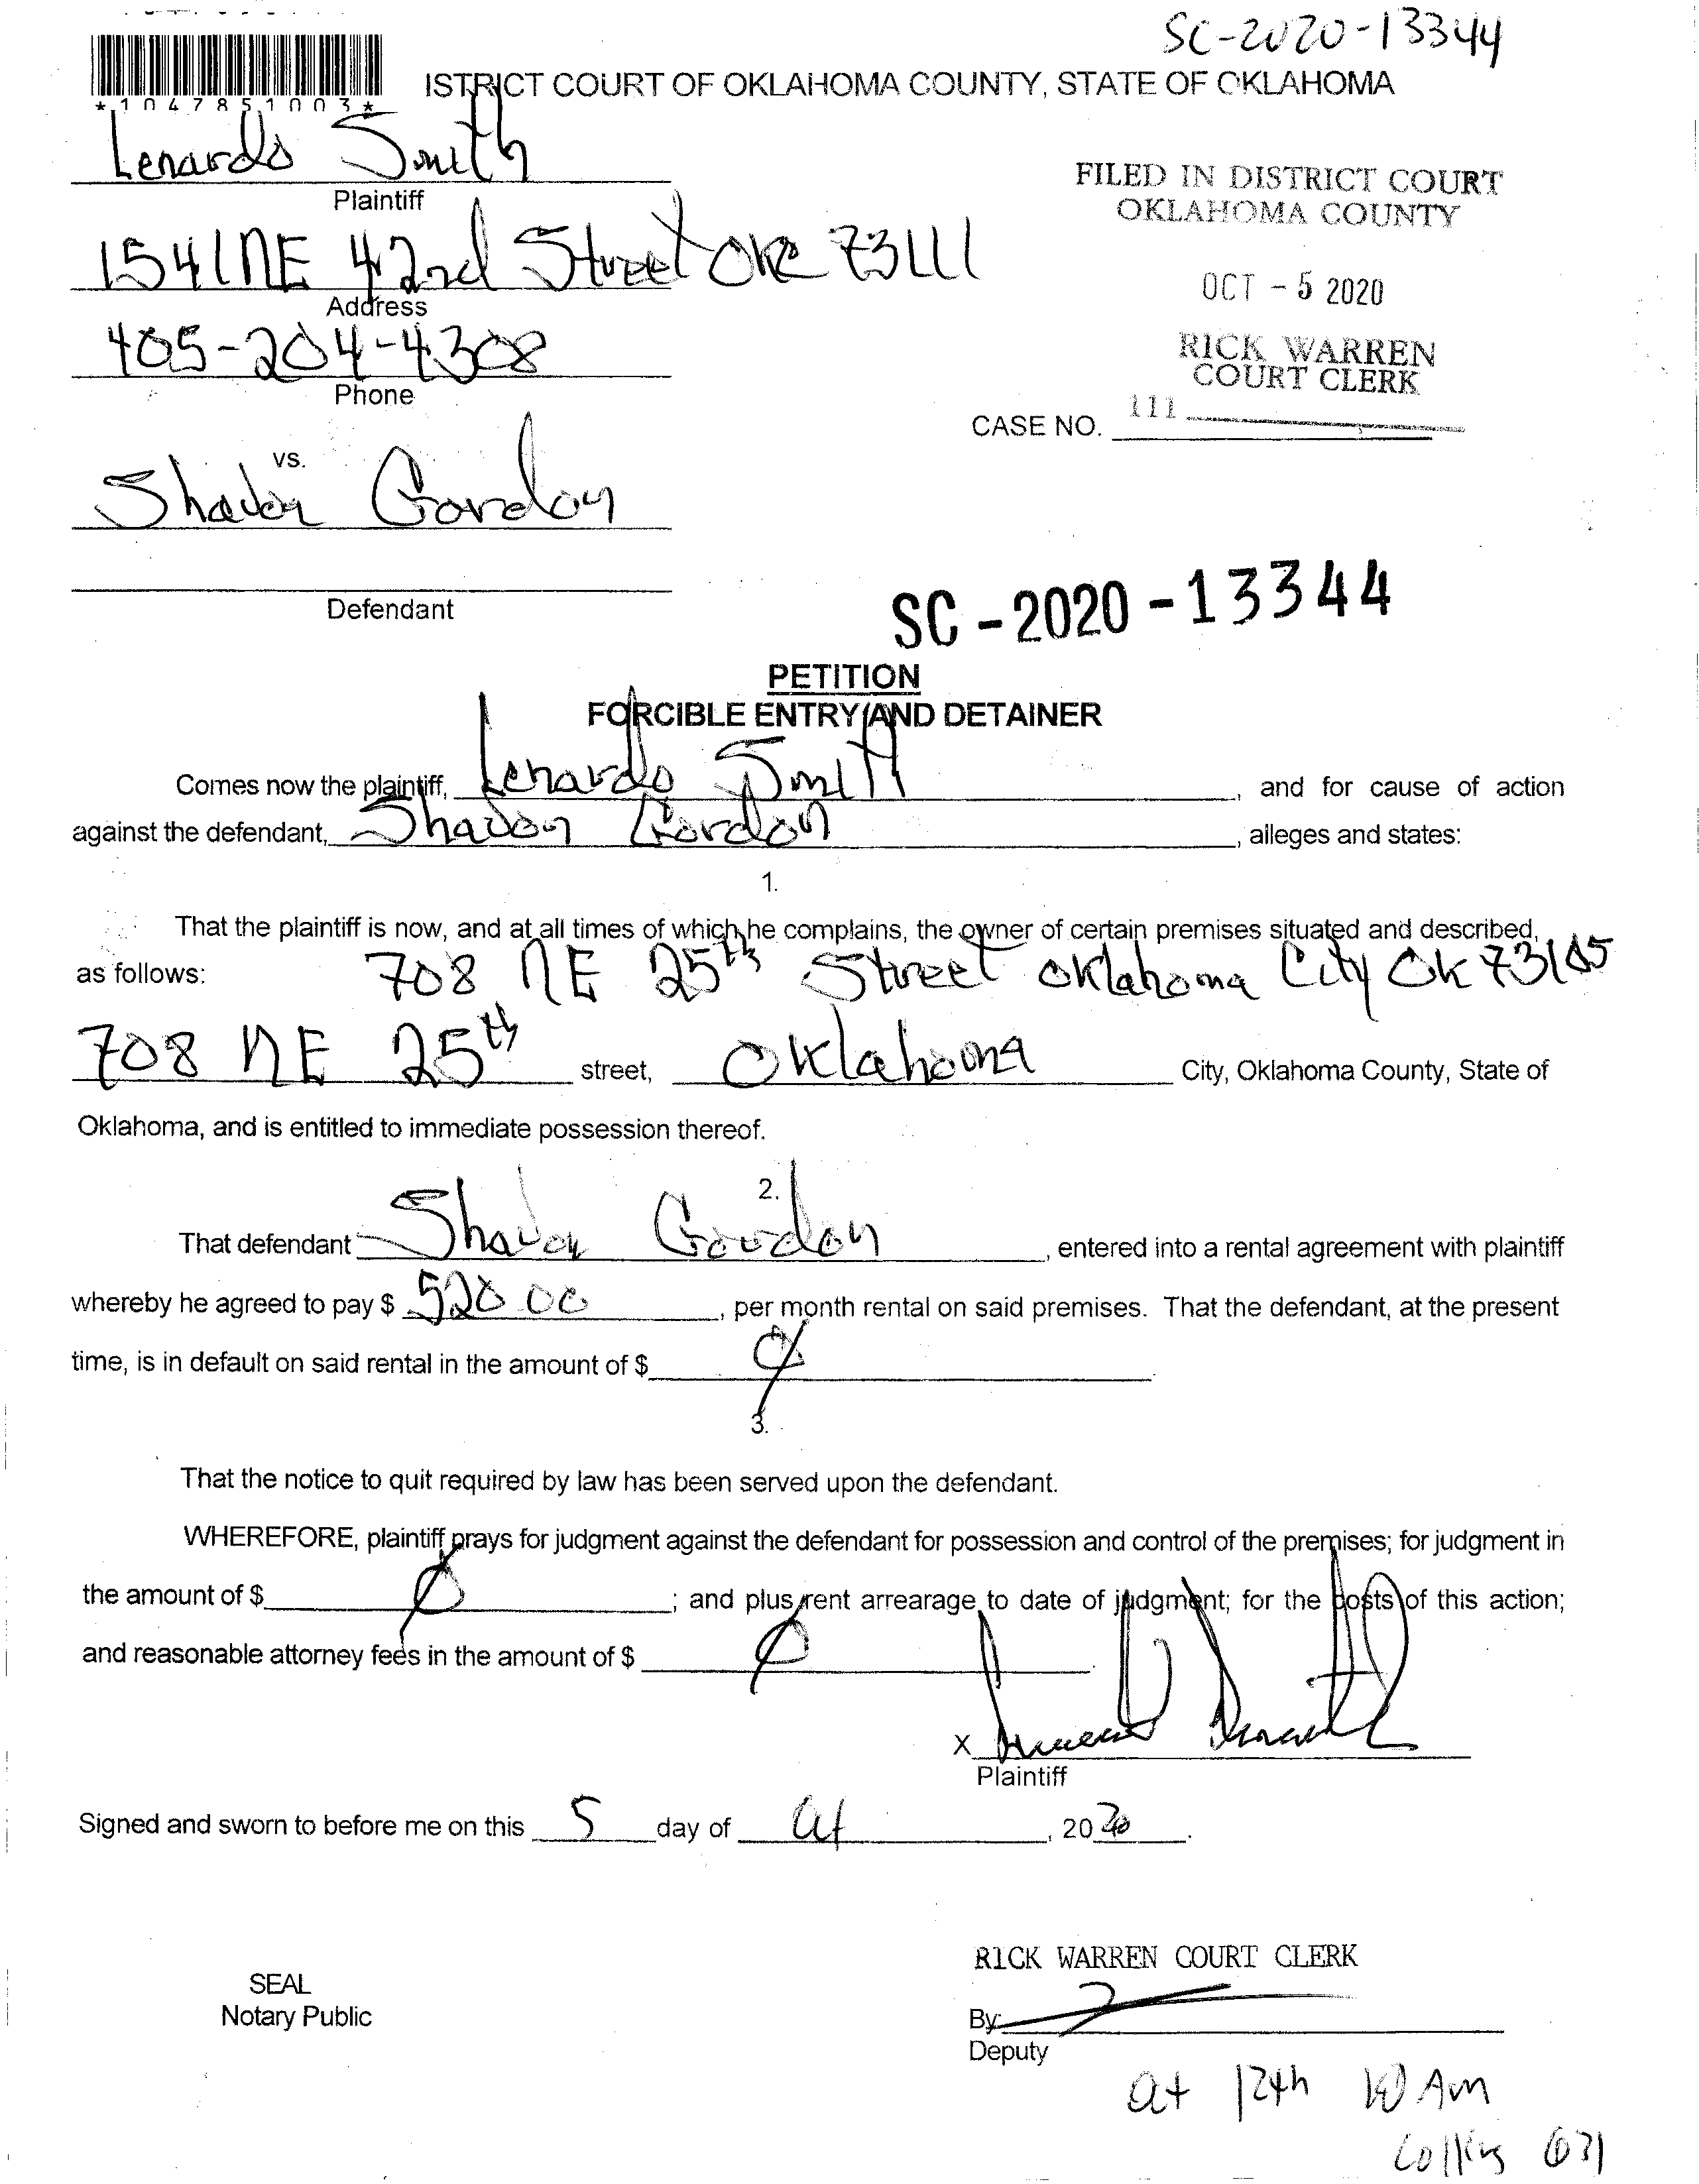 SC-2020-13344
*1047851003*
ISTRICT COURT OF OKLAHOMA COUNTY, STATE OF OKLAHOMA
Lenardo Smith
Plaintiff
FILED IN DISTRICT COURT
OKLAHOMA COUNTY
1541 NE 42nd Street OKC 73111
Address
OCT - 5 2020
405-204-4308
Phone
RICK WARREN
COURT CLERK
111
CASE NO.
vs.
Gordon
Defendant
SC-2020-13344
PETITION
FORCIBLE ENTRY AND DETAINER
Comes now the plaintiff, Lenardo Smith, and for cause of action
against the defendant, Gordon, alleges and states:
1.
That the plaintiff is now, and at all times of which he complains, the owner of certain premises situated and described,
as follows: 708 NE 25th Street Oklahoma City OK 73105
708 NE 25th street, Oklahoma City, Oklahoma County, State of
Oklahoma, and is entitled to immediate possession thereof.
2.
That defendant Gordon, entered into a rental agreement with plaintiff
whereby he agreed to pay $ 520 00, per month rental on said premises. That the defendant, at the present
time, is in default on said rental in the amount of $ Ø
3.
That the notice to quit required by law has been served upon the defendant.
WHEREFORE, plaintiff prays for judgment against the defendant for possession and control of the premises; for judgment in
the amount of $ Ø; and plus rent arrearage to date of judgment; for the costs of this action;
and reasonable attorney fees in the amount of $ Ø.
X
Plaintiff
Signed and sworn to before me on this 5 day of , 2020.
RICK WARREN COURT CLERK
SEAL
Notary Public
By:
Deputy
12th 10 Am
Collins 631